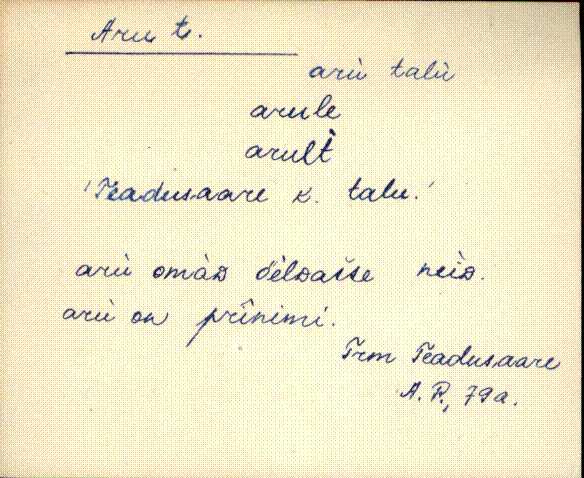 Aru t.
arù talù
arule
arult̀
'Teadusaare k. talu.'
arù omàᴅ öèlᴅaťše neìᴅ.
arù on prînimi.
Trm Teadusaare
A. P., 79a.